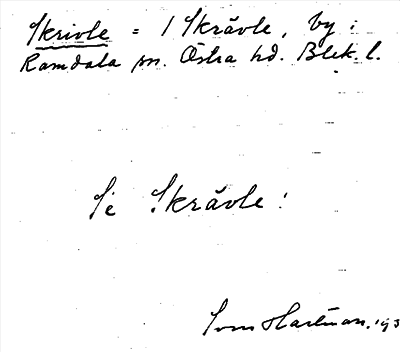 Skrivle = 1 Skrävle, by i
Ramdala sn. Östra hd. Blek. l.
Se Skrävle!
Sven Hartman. 193